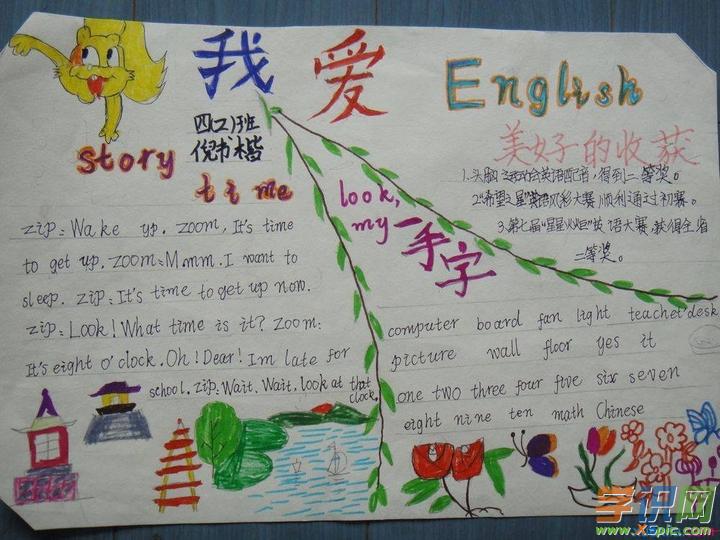 我 爱 English
四(2)班
倪书楷
story
time
zip: Wake up. zoom, It's time
to get up. zoom: Mmm. I want to
sleep. zip: It's time to get up now.
zip: Look! What time is it? zoom:
It's eight o'clock. Oh! Dear! Im late for
school. zip: Wait. Wait. look at that
clock.
look,
my 一手字
美好的收获
1.头脑运动会英语配音,得到二等奖。
2."希望之星"英语风彩大赛顺利通过初赛。
3.第七届"星星火炬"英语大赛获得全省
二等奖。
computer board fan light teacher'desk
picture wall floor yes it
one two three four five six seven
eight nine ten math Chinese
学识网
www.XSpic.com